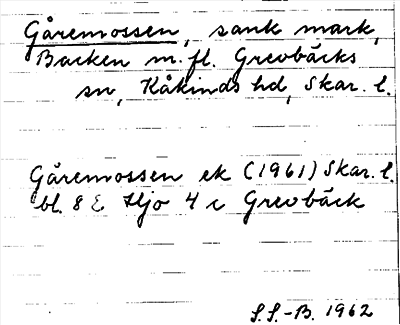 Gåremossen, sank mark,
Backen m.fl. Grevbäcks
sn, Kåkinds hd, Skar. l.
Gåremossen ek (1961) Skar. l.
bl. 8 E Hjo 4 c Grevbäck
S.S.-B. 1962